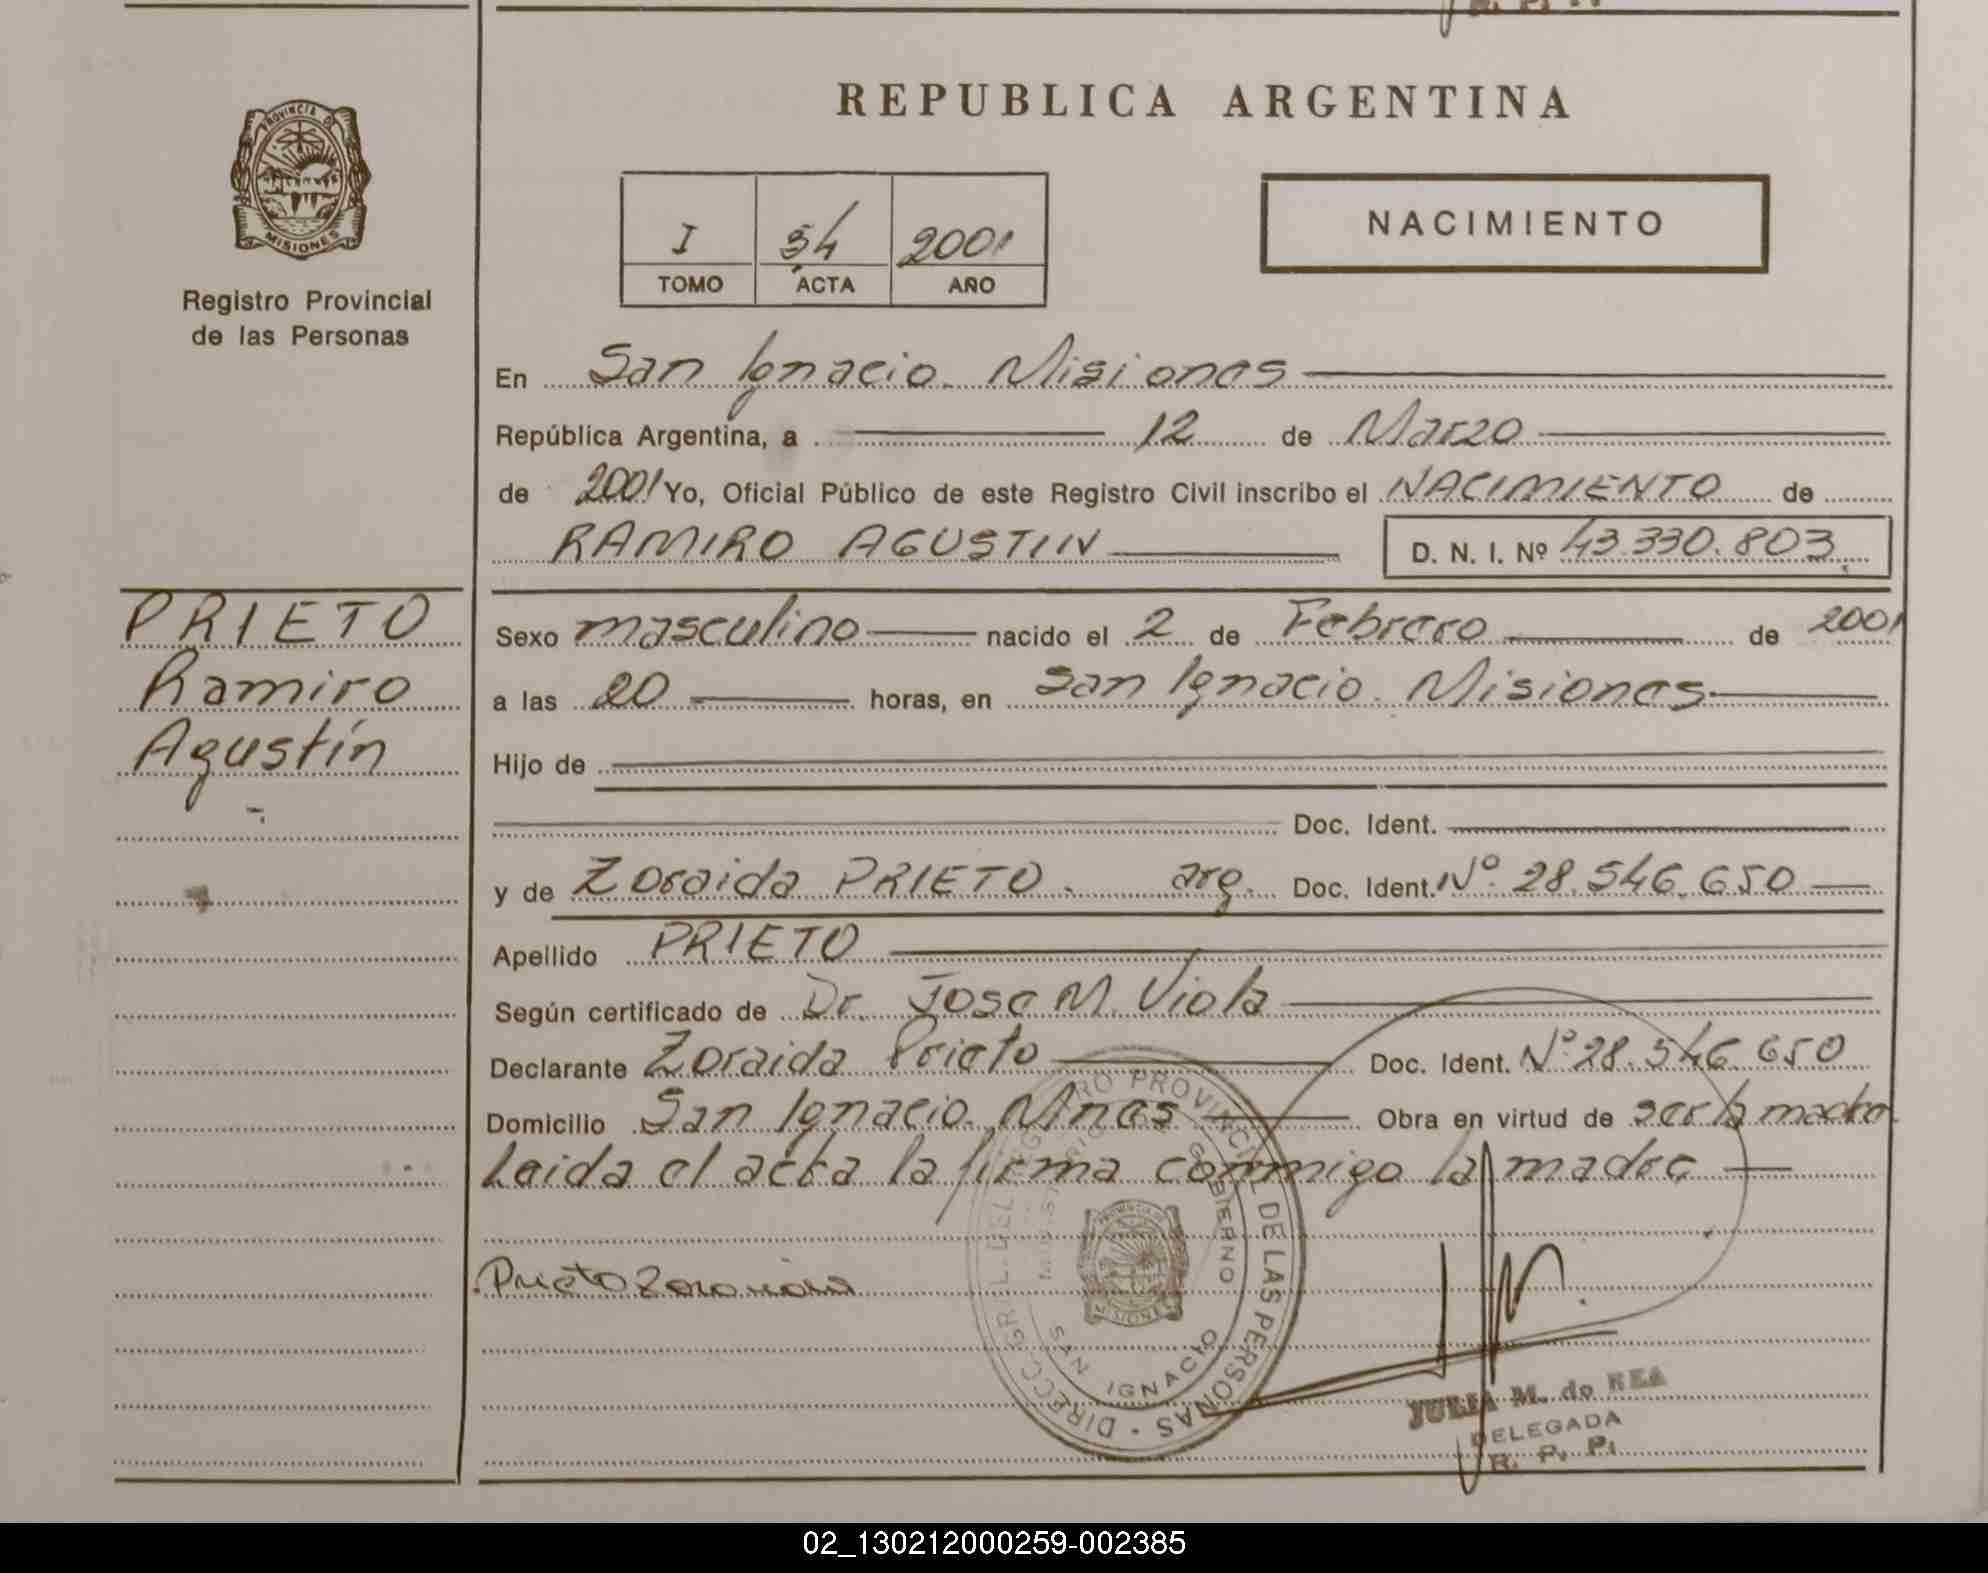 REPUBLICA ARGENTINA
PROVINCIA DE
MISIONES
Registro Provincial
de las Personas
I 54 2001
TOMO ACTA AÑO
NACIMIENTO
En San Ignacio. Misiones
República Argentina, a 12 de Marzo
de 2001 Yo, Oficial Público de este Registro Civil inscribo el NACIMIENTO de
RAMIRO AGUSTIN D. N. I. Nº 43.330.803
PRIETO
Ramiro
Agustín
Sexo masculino nacido el 2 de Febrero de 2001
a las 20 horas, en San Ignacio. Misiones
Hijo de
Doc. Ident.
y de Zoraida PRIETO. arg. Doc. Ident. Nº. 28.546.650
Apellido PRIETO
Según certificado de Dr. Jose M. Viola
Declarante Zoraida Prieto Doc. Ident. Nº. 28.546.650
Domicilio San Ignacio. Mnes Obra en virtud de ser la madre.
Leida el acta la firma conmigo la madre
Prieto Zoraida
DIRECC. GRAL. DEL REGISTRO PROVINCIAL DE LAS PERSONAS
GOBIERNO
SAN IGNACIO
JULIA M. de REA
DELEGADA
R. P. P.
02_130212000259-002385